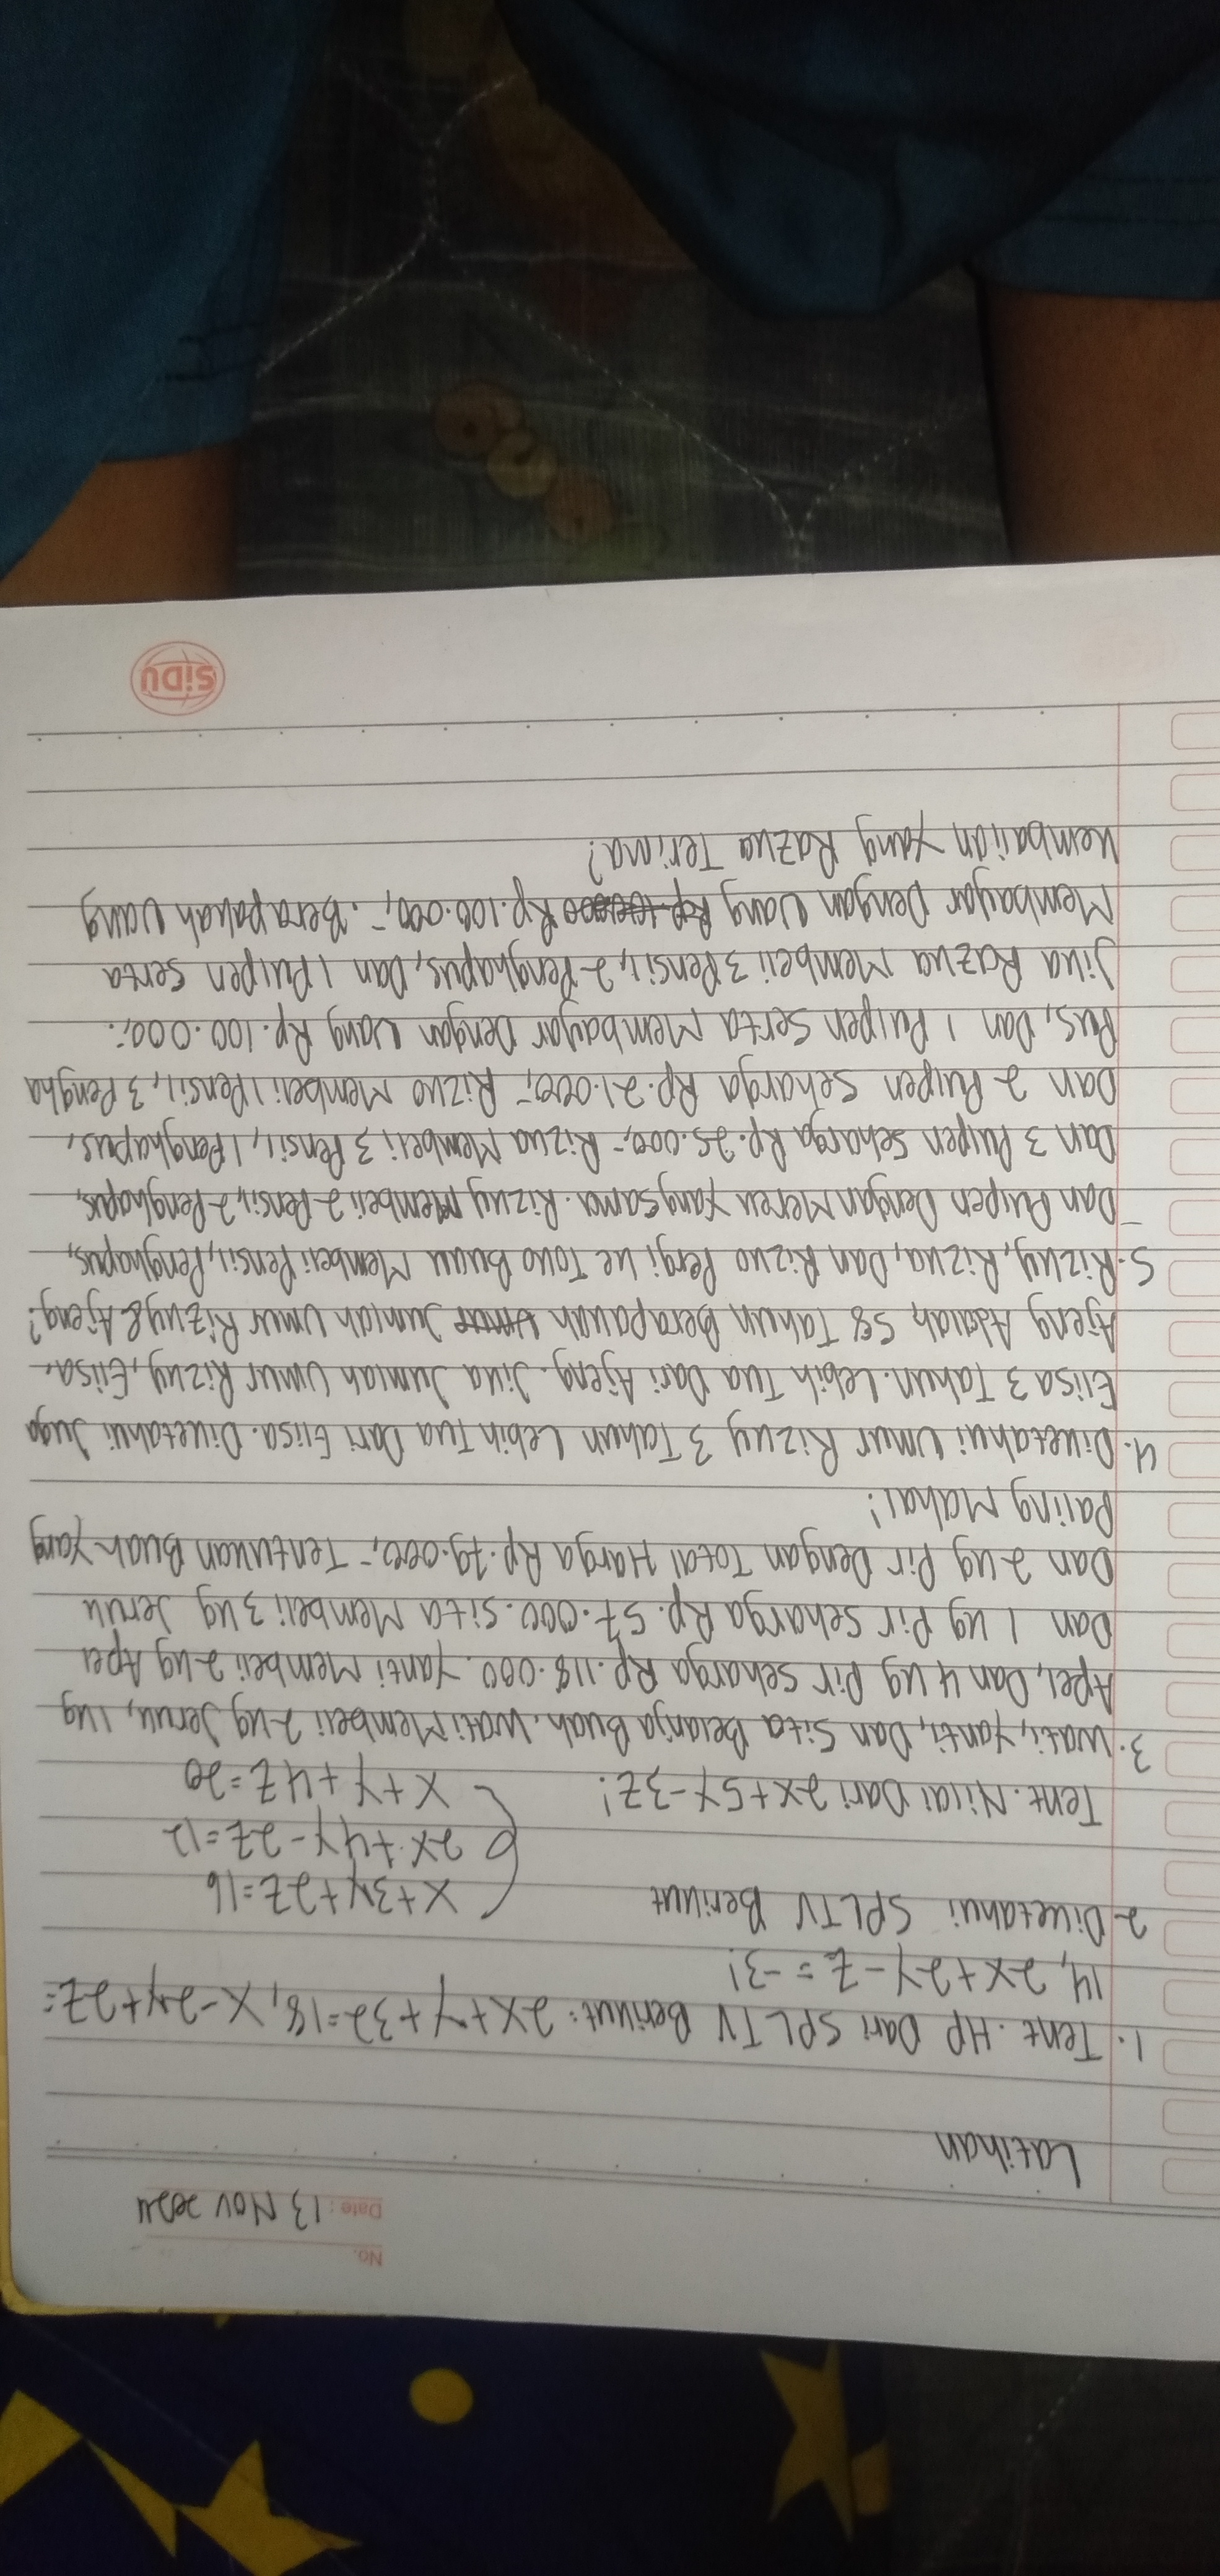 No.
Date : 13 Nov 2024
Latihan
1. Tent. HP Dari SPLTV Berikut: 2x+y+3z=18, x-2y+2z=
14, 2x+2y-z = -3!
2. Diketahui SPLTV Berikut
x+3y+2z=16
2x+4y-2z=12
x+y+4z=20
Tent. Nilai Dari 2x+5y-3z!
3. Wati, Yanti, Dan Sita Belanja Buah. Wati Membeli 2 kg Jeruk, 1 kg
Apel, Dan 4 kg Pir Seharga Rp. 118.000. Yanti Membeli 2 kg Apel
Dan 1 kg Pir Seharga Rp. 57.000. Sita Membeli 3 kg Jeruk
Dan 2 kg Pir Dengan Total Harga Rp. 79.000,- Tentukan Buah Yang
Paling Mahal!
4. Diketahui Umur Rizky 3 Tahun Lebih Tua Dari Elisa. Diketahui Juga
Elisa 3 Tahun Lebih Tua Dari Ajeng. Jika Jumlah Umur Rizky, Elisa,
Ajeng Adalah 58 Tahun Berapakah Jumlah Umur Rizky & Ajeng?
5. Rizky, Rizka, Dan Rizko Pergi ke Toko Buku Membeli Pensil, Penghapus,
Dan Pulpen Dengan Merek Yang Sama. Rizky Membeli 2 Pensil, 2 Penghapus,
Dan 3 Pulpen Seharga Rp. 25.000,- Rizka Membeli 3 Pensil, 1 Penghapus,
Dan 2 Pulpen Seharga Rp. 21.000,- Rizko Membeli 1 Pensil, 3 Pengha
Pus, Dan 1 Pulpen Serta Membayar Dengan Uang Rp. 100.000,-.
Jika Razka Membeli 3 Pensil, 2 Penghapus, Dan 1 Pulpen Serta
Membayar Dengan Uang Rp. 100.000,-. Berapakah Uang
Kembalian Yang Razka Terima?
SiDU